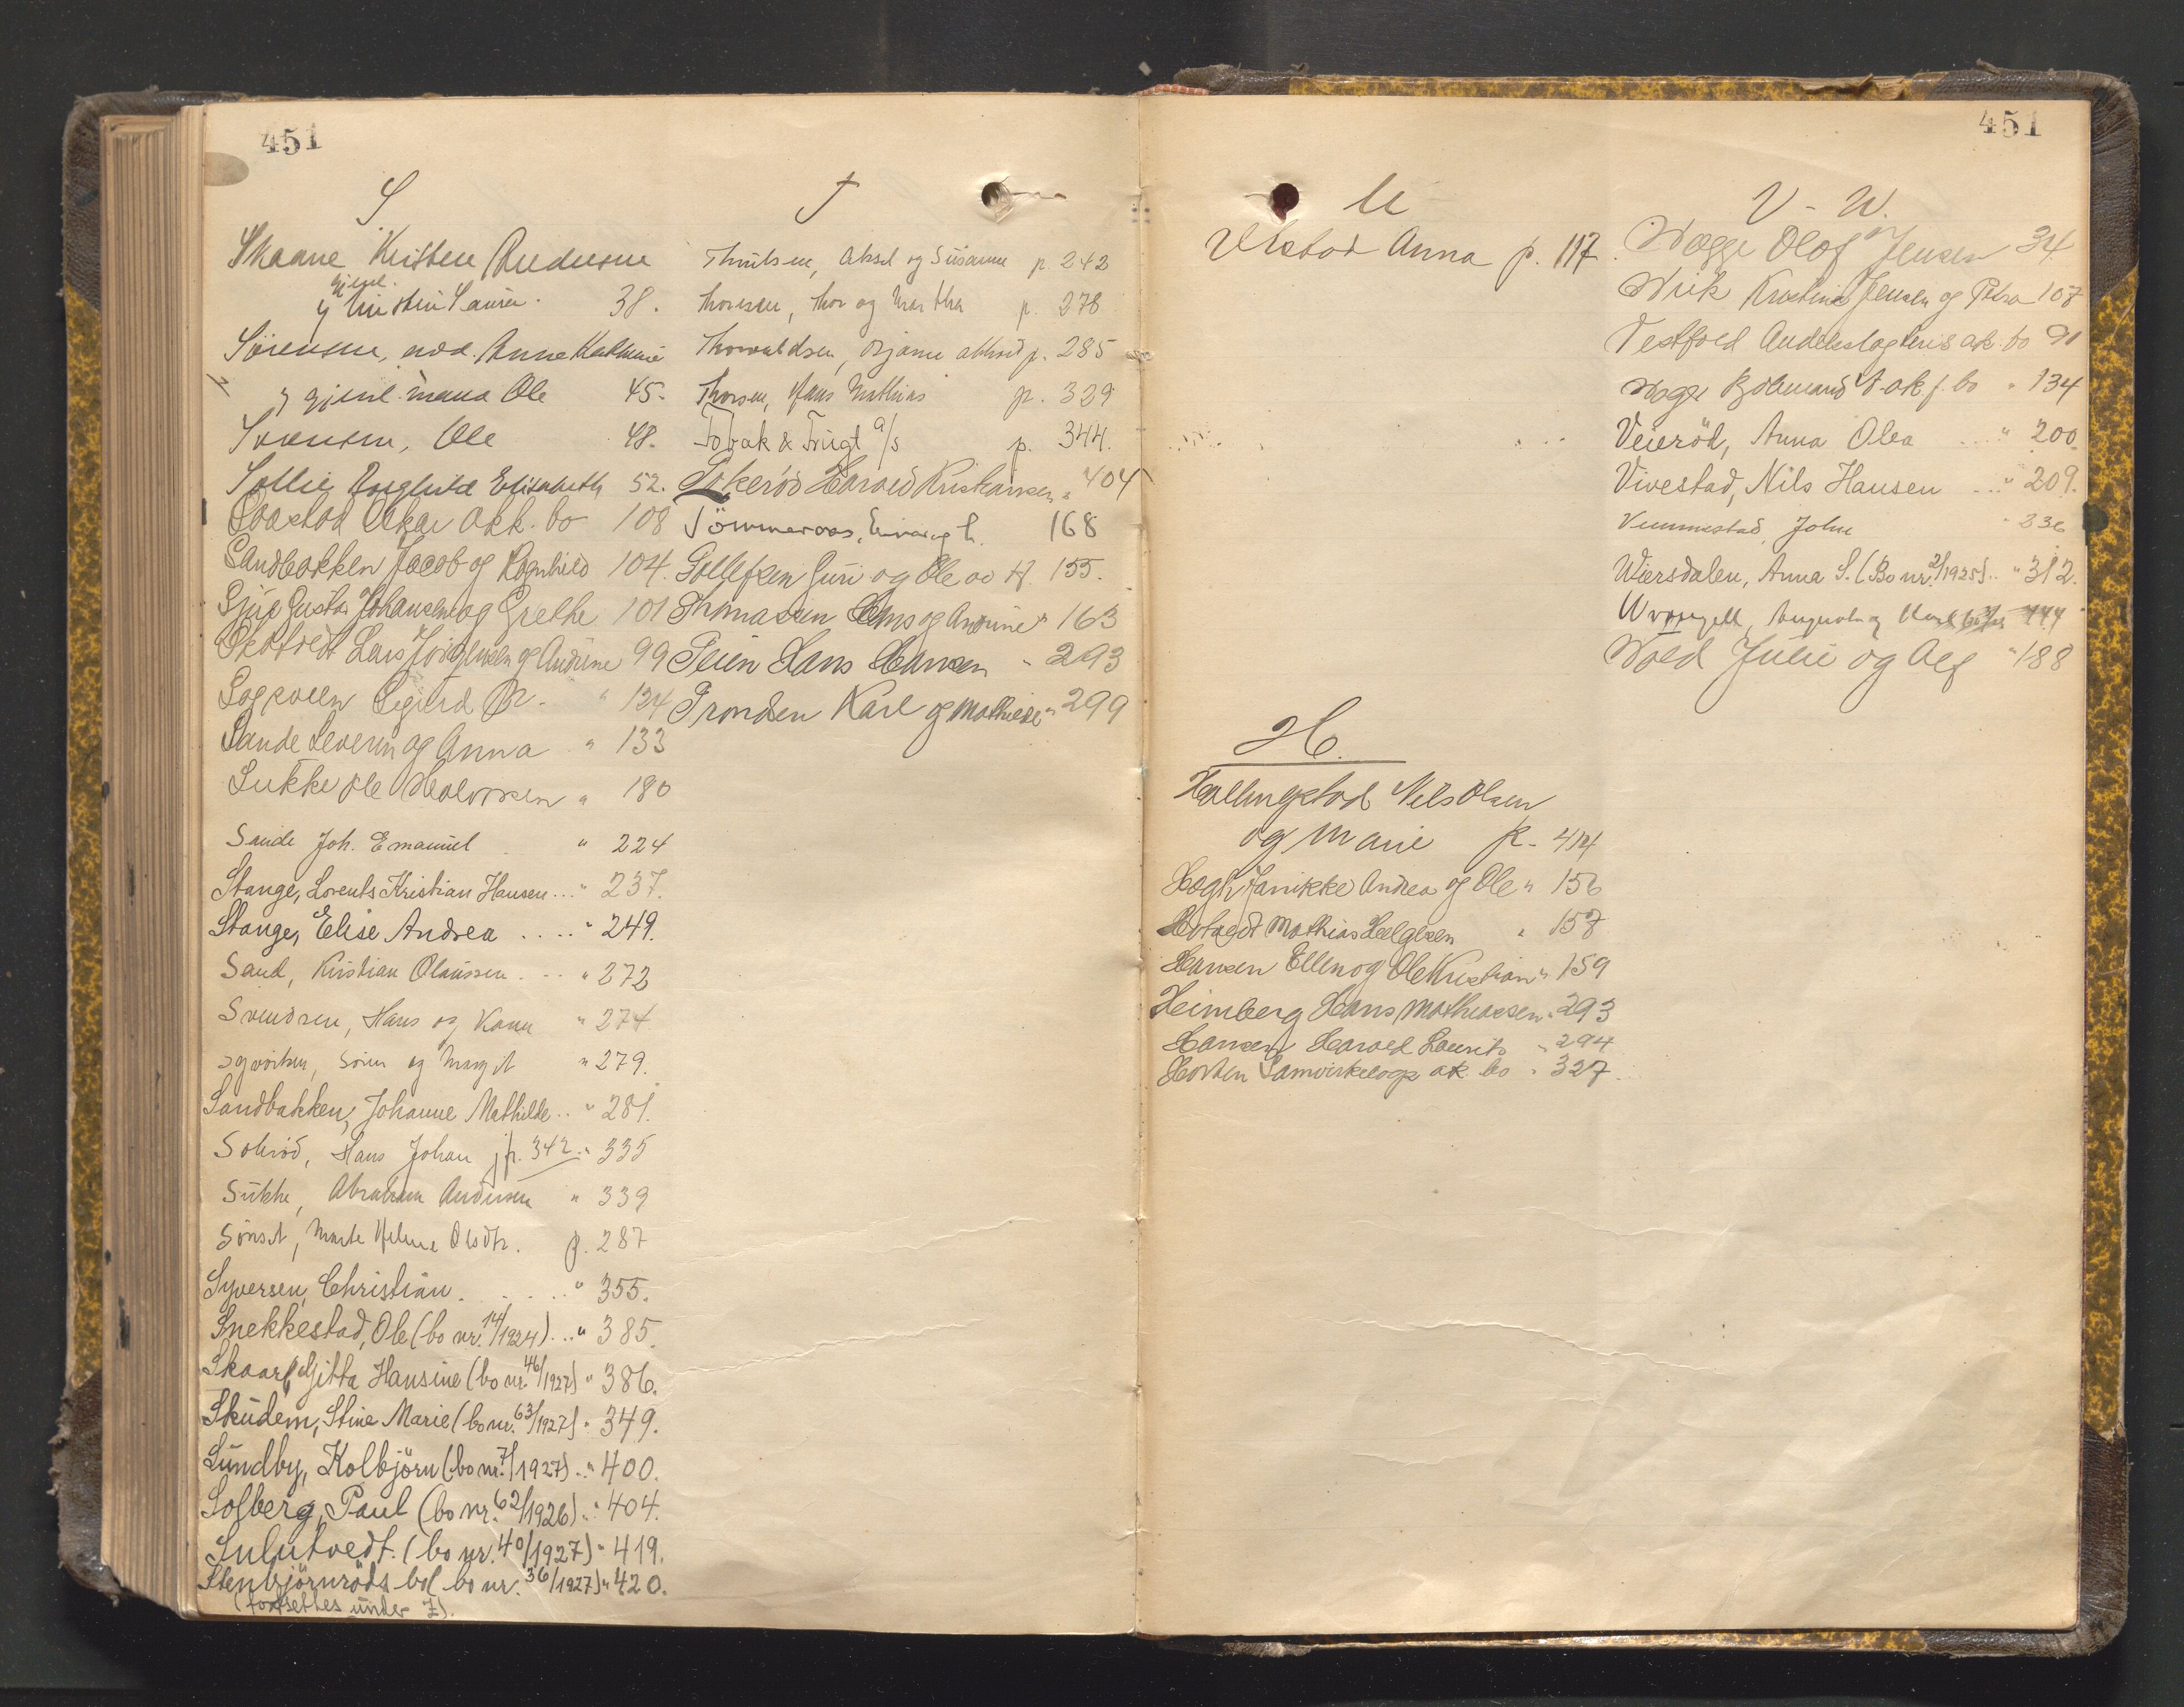 451
S
Skaane Kristen Andersen
gjenl.
38.
Sörensen, Anne Kathrine
og gjenl. mand Ole 45.
Svensen, Ole 48.
Sollie Ragnhild Elisabeth 52.
Saastad Oskar akk. bo 108
Sandbakken Jacob og Ragnhild 104.
Sjue Gustav Johansen og Grethe 101
Lars Jörgensen og Andrine 99
Sigurd " 124
Sande Severin og Anna " 133
Sukke Ole Halvorsen " 180
Sande Joh. Emanuel " 224
Stange, Lorents Kristian Hansen ... " 237.
Stange, Elise Andrea .... " 249.
Sand, Kristian Olaussen ... " 272
Svendsen, Hans og Karen " 274
Sören og Margit " 279.
Sandbakken, Johanne Mathilde .. " 281.
Solröd, Hans Johan jfr. 342 . " 335
Sukke, Abraham Andersen " 339
Sönset, Marte Helene Olsdtr. p. 287
Syversen, Christian. ..... " 355.
Snekkestad, Ole (bo nr. 14/1924) ... " 385.
Skaar, Gitta Hansine (bo nr. 46/1927) " 386.
Skudem, Stine Marie (bo nr. 63/1927) " 349.
Sundby, Kolbjörn (bo nr. 7/1927) .. " 400.
Solberg, Paul (bo nr. 62/1926) .. " 404.
Sulutvedt. (bo nr. 40/1927) " 419.
Stenbjörnröds bo (bo nr. 36/1927) " 420.
(fortsettes under Z).
T
Aksel og Susanne p. 242
Thoresen, Thor og Martha p. 278
Thorvaldsen, Bjarne p. 285
Thorsen, Hans Mathias p. 329
Tobak & Frugt a/s p. 344.
Tokeröd Harald Kristiansen " 404
Tömmeraas, Einar 168
Tollefsen Guri og Ole 155.
Thomassen Hans og Andrine " 163
Teien Hans Hansen " 293
Trondsen Karl og Mathilde " 299
451
U
Ulstad Anna p. 117.
H.
Hallingstad Nils Olsen
og Marie p. 414
Hogh Jannikke Andrea og Ole " 156
Hotvedt Mathias Helgesen " 157
Hansen Ellen og Ole Kristian " 159
Heimberg Hans Mathiassen " 293
Hansen Harald Laurits " 294
Horten Samvirkelags ak. bo " 327
V - W.
Wegge Olof Jensen 34
Wiik Kristine Jensen og Petra 107
Vestfold Andelslagteris ak. bo 91
ak f. bo " 134
Veieröd, Anna Olea .... " 200.
Vivestad, Nils Hansen ... " 209.
Vummestad, John " 236
Wiersdalen, Anna S. (Bo nr. 2/1925) .. " 312.
444
Wold Julie og Alf " 188